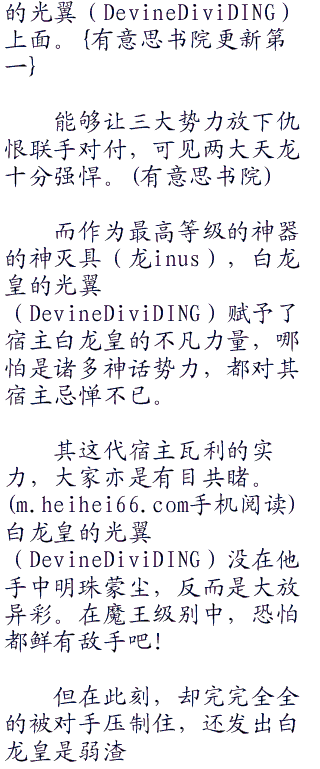 的光翼（DevineDiviDING）
上面。{有意思书院更新第
一}
能够让三大势力放下仇
恨联手对付，可见两大天龙
十分强悍。(有意思书院)
而作为最高等级的神器
的神灭具（龙inus），白龙
皇的光翼
（DevineDiviDING）赋予了
宿主白龙皇的不凡力量，哪
怕是诸多神话势力，都对其
宿主忌惮不已。
其这代宿主瓦利的实
力，大家亦是有目共睹。
(m.heihei66.com手机阅读)
白龙皇的光翼
（DevineDiviDING）没在他
手中明珠蒙尘，反而是大放
异彩。在魔王级别中，恐怕
都鲜有敌手吧!
但在此刻，却完完全全
的被对手压制住，还发出白
龙皇是弱渣